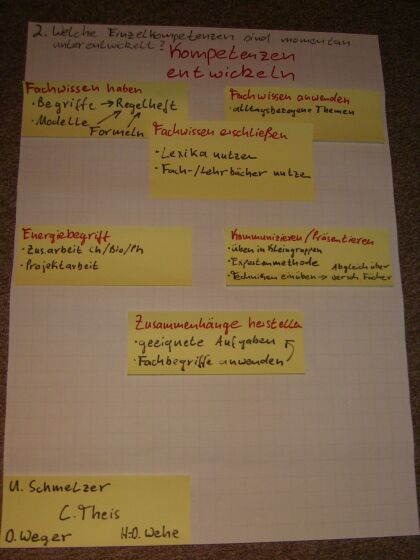 2. Welche Einzelkompetenzen sind momentan
unterentwickelt?
Kompetenzen
entwickeln
Fachwissen haben
· Begriffe → Regelheft
· Modelle
Formeln
Fachwissen anwenden
· alltagsbezogene Themen
Fachwissen erschließen
· Lexika nutzen
· Fach-/Lehrbücher nutzen
Energiebegriff
· Zus.arbeit Ch/Bio/Ph
· Projektarbeit
Kommunizieren/Präsentieren
· üben in Kleingruppen
· Expertenmethode
· Techniken einüben → Abgleich über
versch. Fächer
Zusammenhänge herstellen
· geeignete Aufgaben
· Fachbegriffe anwenden
U. Schmelzer
C. Theis
O. Weger
H.-O. Wehe